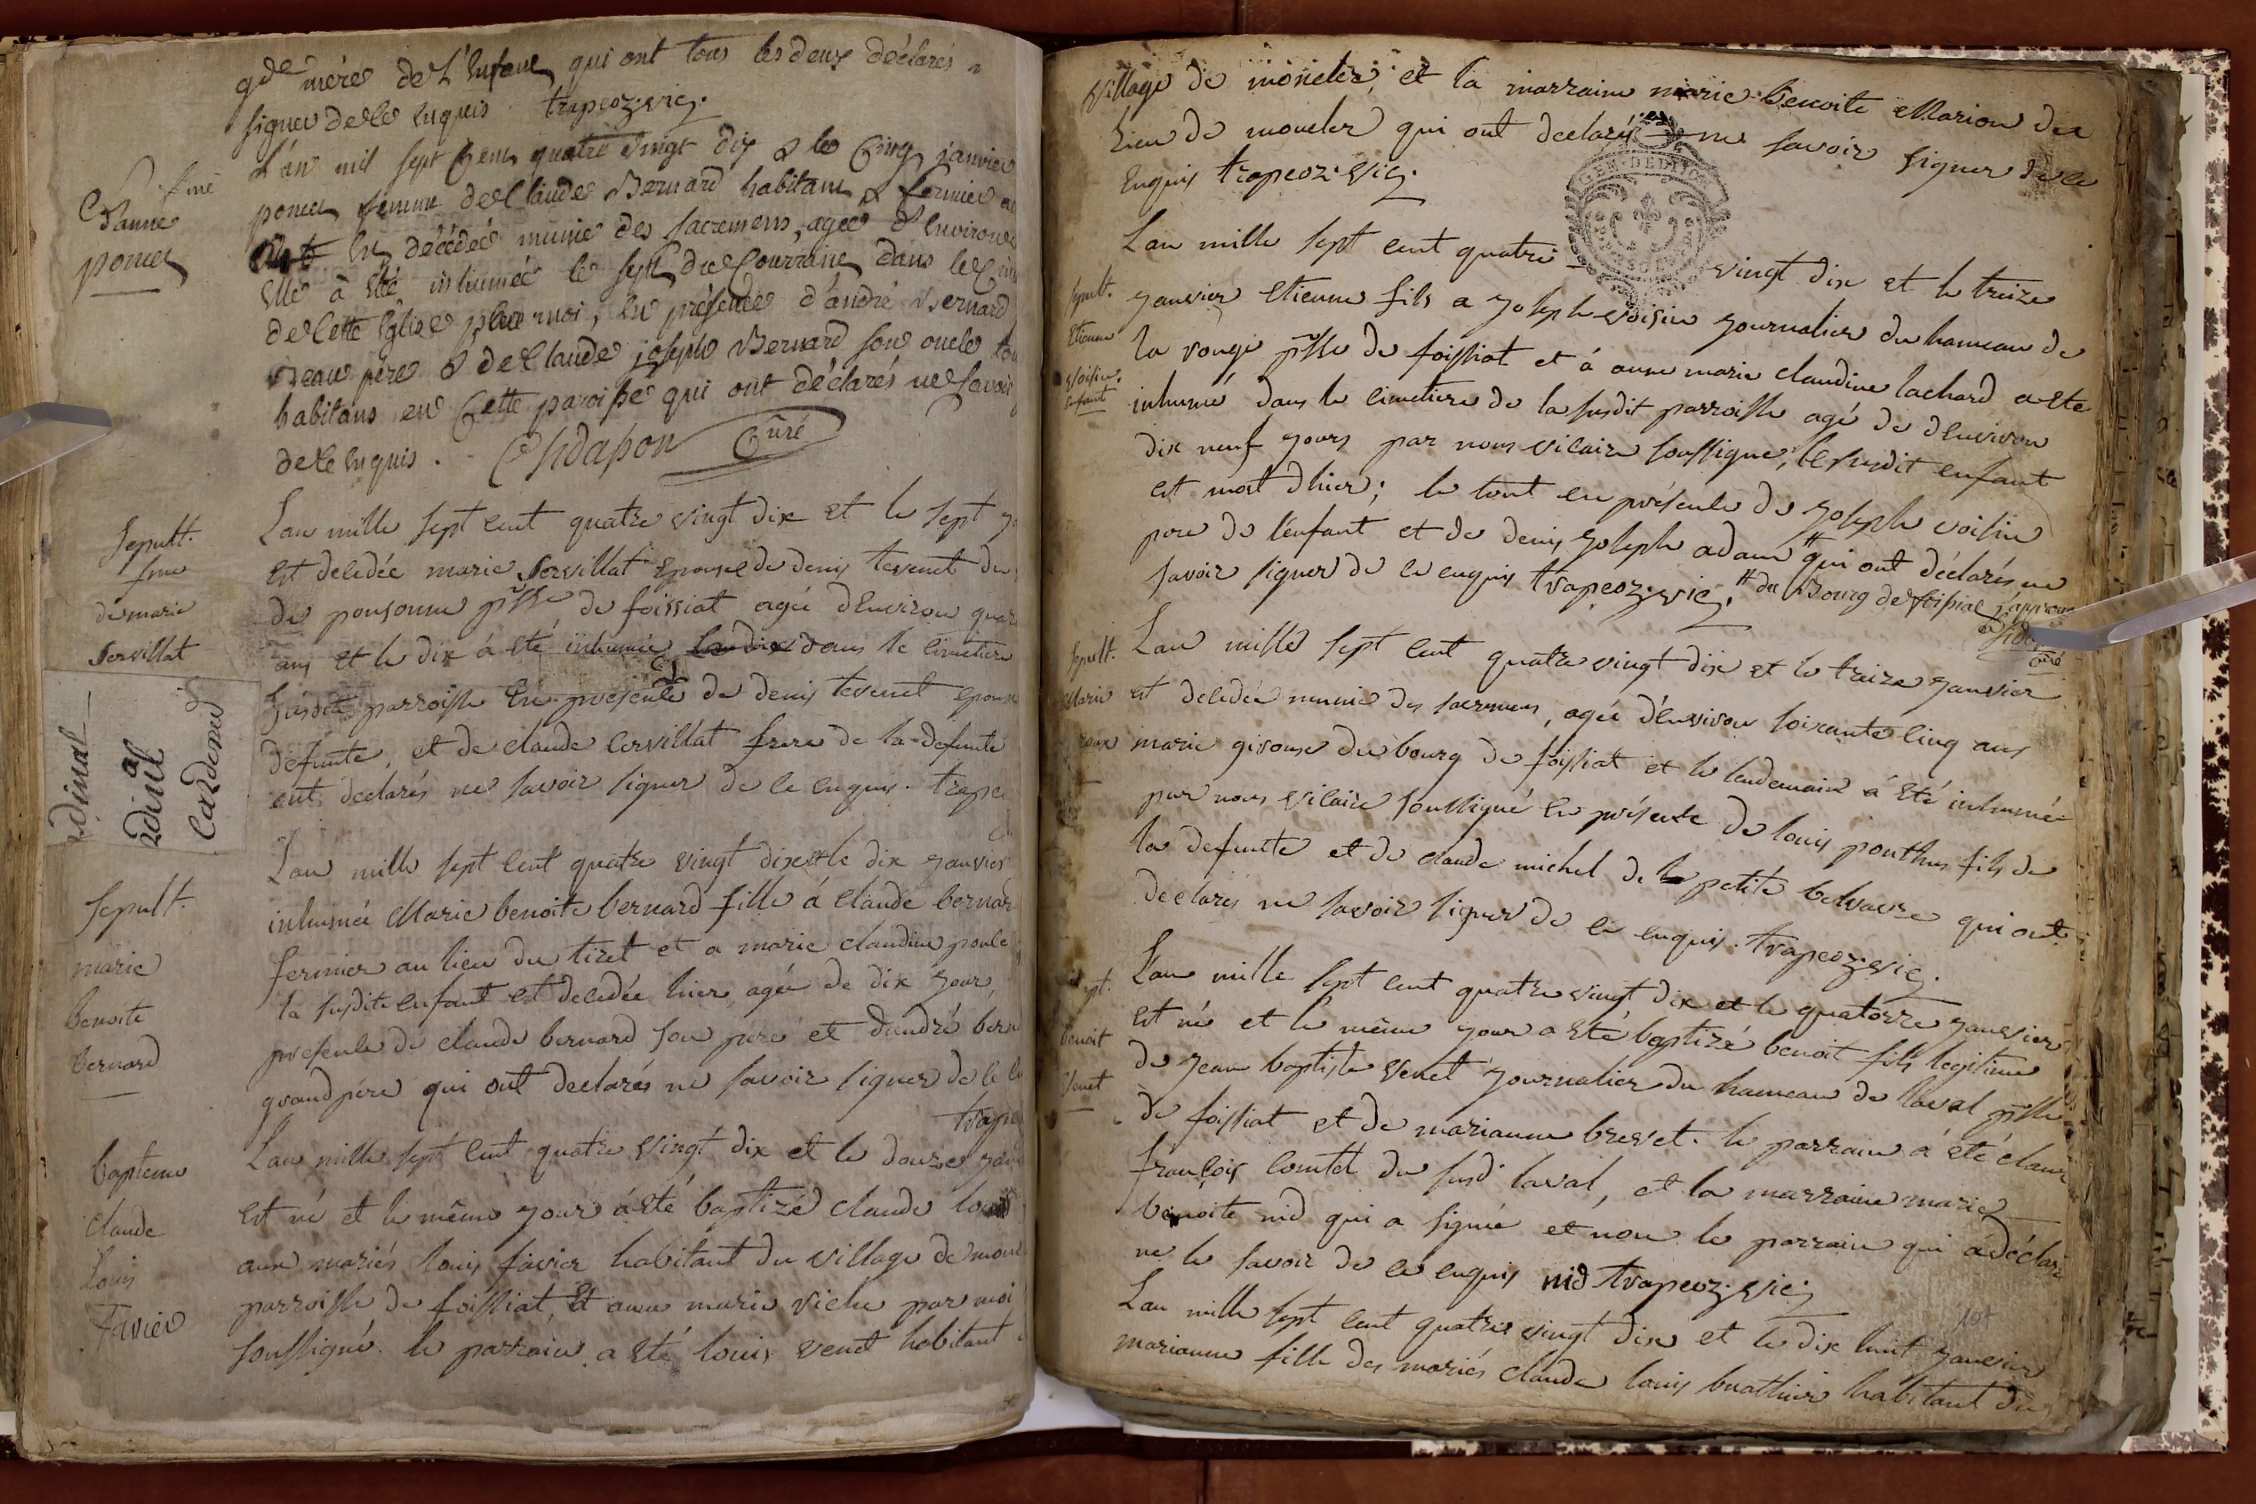 gde mère de L'enfant qui ont tous les deux déclarés n
signer de ce enquis trapeoz. vic.
L'an mil sept Cent quatre vingt dix & le Cinq janvier
poncet femme de Claude Bernard habitant & fermier au
est décédée munie des sacremens, agée d'environ
elle à été inhumée le sept du Courrant dans le Cim
de cette Eglise par moi, en présence d'andré Bernard
Beau père & de Claude joseph Bernard son oncle tou
habitans en Cette paroisse qui ont déclarés ne savoir
de ce enquis. Chdapon Curé
fme
d'anne
poncet
Lan mille sept cent quatre vingt dix et le sept
est decedée marie Servillat épouse de denis tevenet du
de ponsonne psse de foissiat agée denviron quar
ans et le dix à été inhumée dans le cimetiere
susdit parroisse En presence de denis tevenet epoux
defunte, et de claude Cervillat frere de la defunte
ont declarés ne savoir signer de ce enquis. trape
Sepult.
fme
de marie
Servillat
dinal
dinal
Cardenal
Lan mille sept cent quatre vingt dix et le dix janvier
inhumée Marie benoite bernard fille á claude bernard
fermier au lieu du tiret et a marie claudine ponce
la susdite enfant est decedée hier, agée de dix jour,
presence de claude bernard son pere et dandré bern
grand pére qui ont declarés ne savoir signer de ce
trape
Sepult.
marie
benoite
bernard
Lan mille sept cent quatre vingt dix et le douze janv
est né et le même jour à été baptizé claude louis
aux mariés louis favier habitant du village de mon
parroisse de foissiat, Et anne marie viche par moi
soussigné. le parrain a été louis venet habitant
bapteme
claude
Louis
Favier
village de moncler, et la marraine marie benoite Marion du
lieu de moncler qui ont declarés ne savoir signer de ce
enquis trapeoz. vic.
GEN. DEDIJON
Lan mille sept cent quatre vingt dix et le treize
janvier etienne fils a joseph voisin journalier du hameau de
la rouge psse de foissiat et à anne marie claudine lachard a été
inhumé dans le cimetiere de la susdit parroisse agé de denviron
dix neuf jours par nous vicaire soussigné, le susdit enfant
est mort dhier; le tout en présence de joseph voisin
pere de lenfant et de denis joseph adam # qui ont déclarés ne
savoir signer de ce enquis trapeoz. vic. # du Bourg de foissiat j'approuve
curé
Sepult.
Etienne
voisin.
enfant
Lan mille sept cent quatre vingt dix et le treize janvier
est decedée munie des sacremens, agée d'environ soixante cinq ans
marie giroux du bourg de foissiat et le lendemain á été inhumée
par nous vicaire soussigné en présence de louis ponthus fils de
la defunte et de claude michel de la petite belvavre qui ont
declarés ne savoir signer de ce enquis. trapeoz. vic.
Sepult.
Marie
roux
Lan mille sept cent quatre vingt dix et le quatorze janvier
est né et le même jour a été baptizé benoit fils legitime
de jean baptiste venet journalier du hameau de laval psse
de foissiat et de marianne brevet. le parrain á été claude
françois comtet du susd laval, et la marraine marie
benoite nid qui a signé et non le parrain qui a déclaré
ne le savoir de ce enquis nid trapeoz. vic.
pt.
benoit
Venet
107
Lan mille sept cent quatre vingt dix et le dix huit janvier
marianne fille des mariés claude louis buathier habitant du